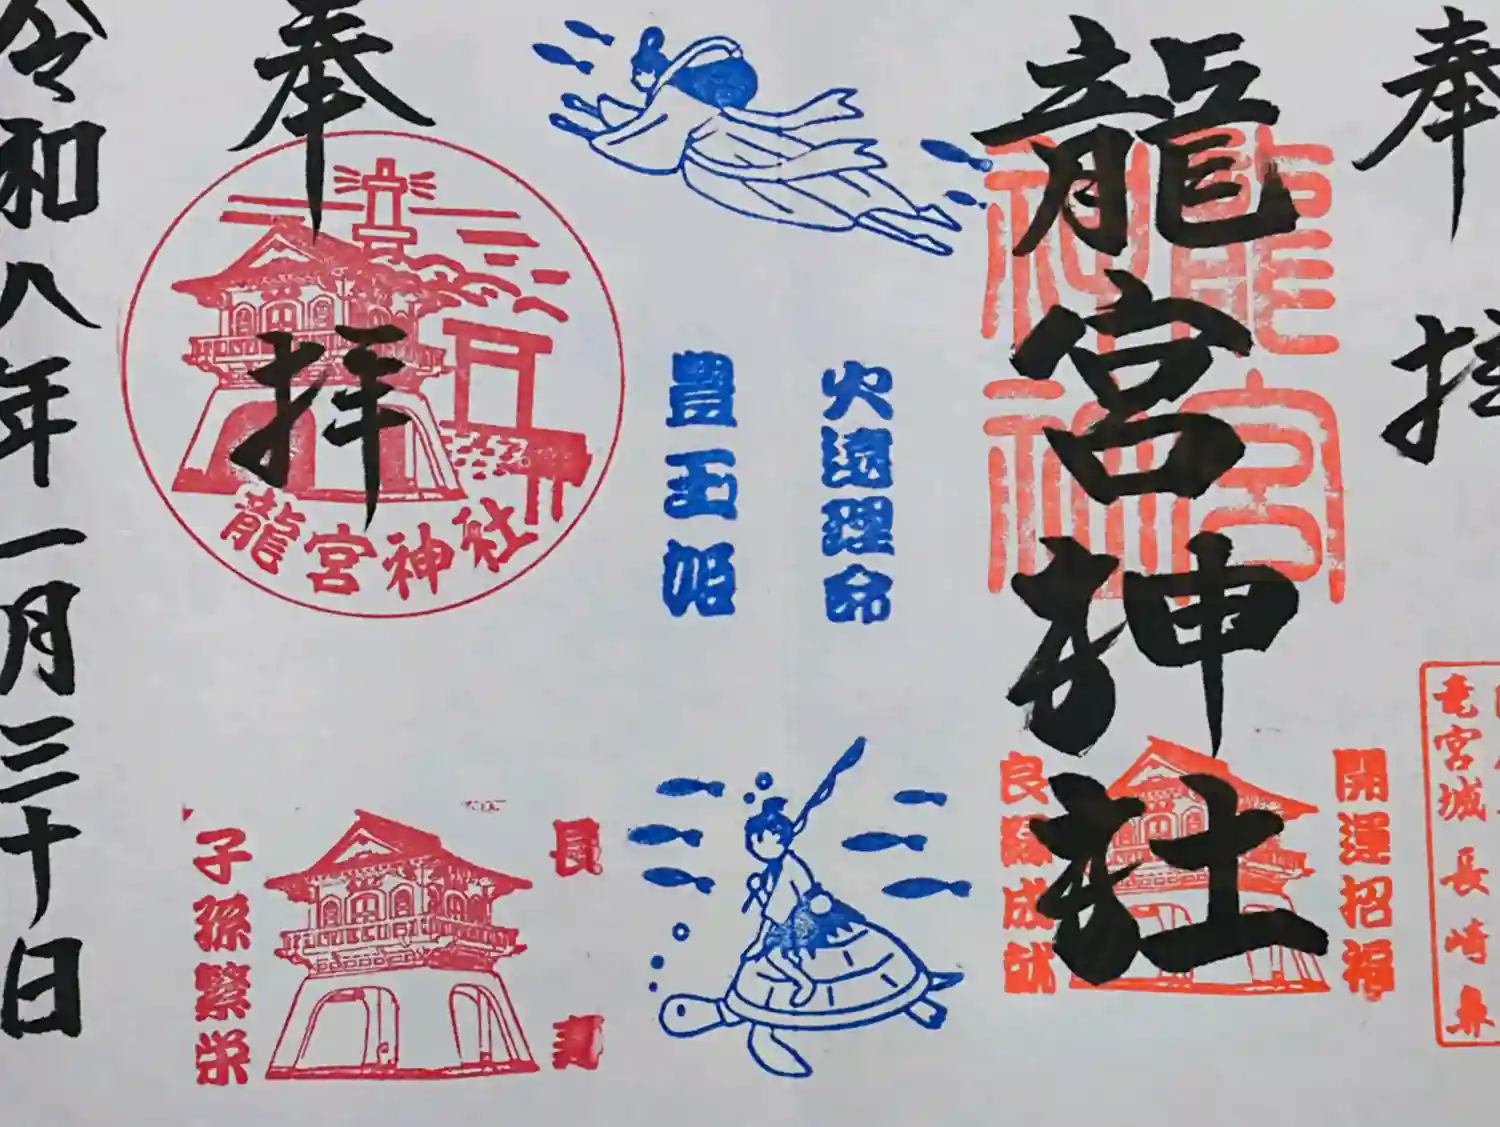 奉拝
竜宮城 長崎鼻
開運招福
龍宮神社
龍宮
神社
良縁成就
火遠理命
豊玉姫
奉拝
龍宮神社
長寿
子孫繁栄
令和八年一月三十日